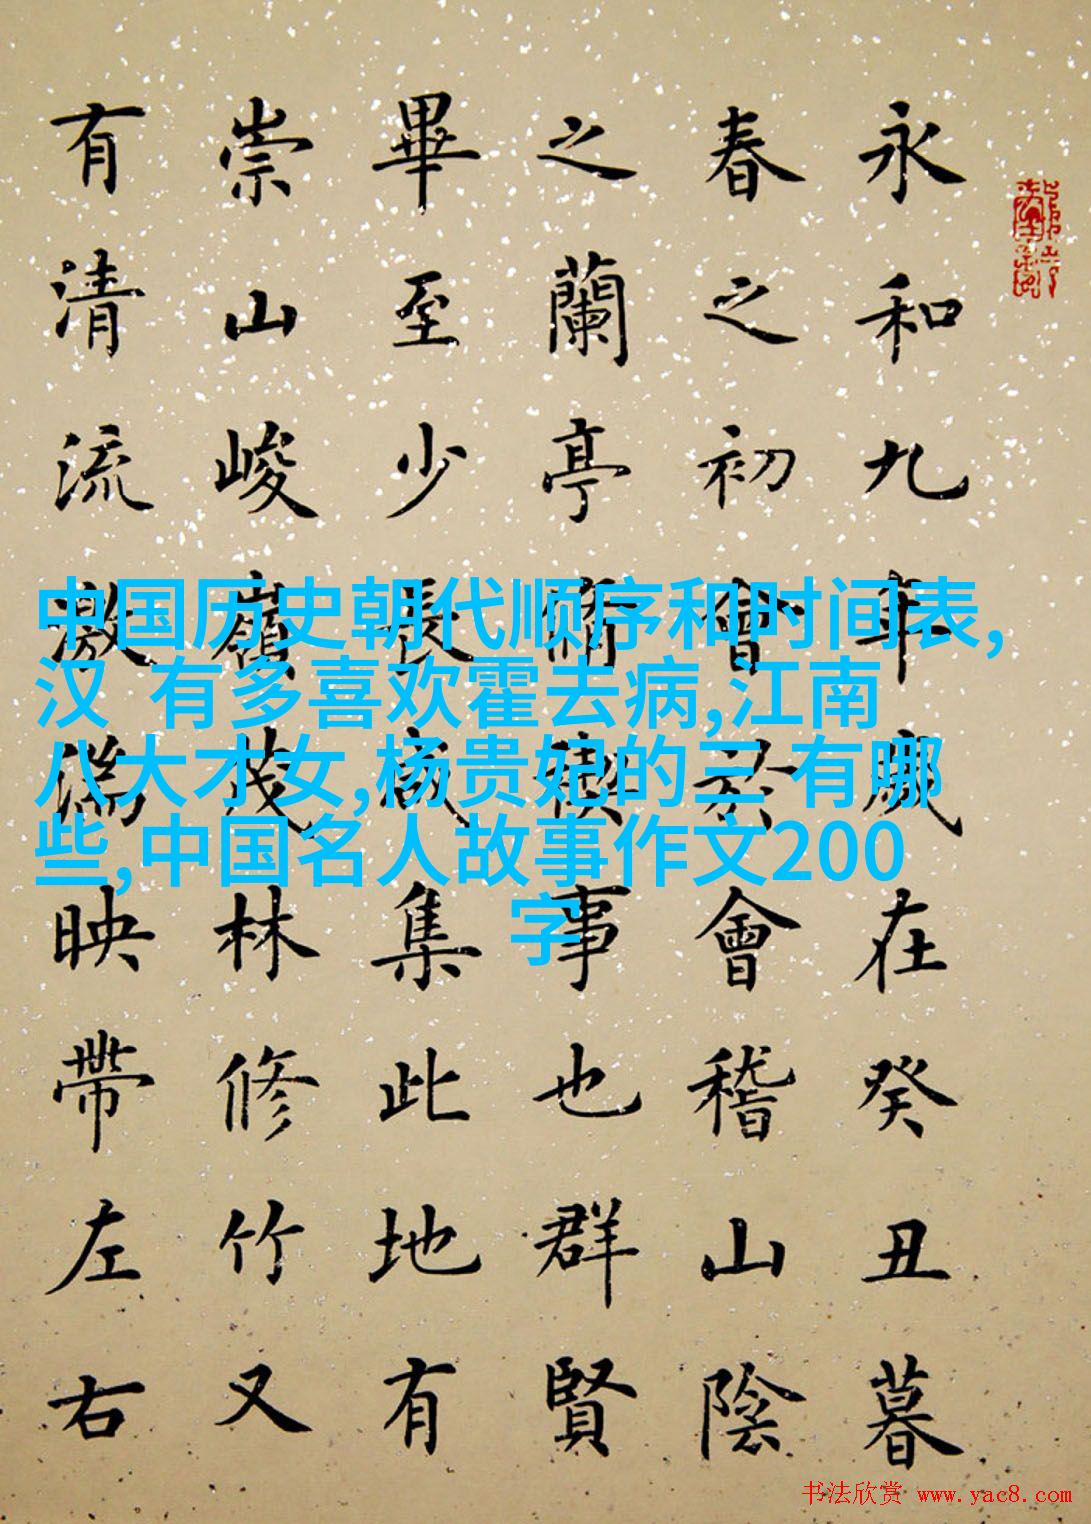 永和九年歲在癸丑暮
春之初會於會稽山陰
之蘭亭脩禊事也群賢
畢至少長咸集此地有
崇山峻嶺茂林修竹又
有清流激湍映帶左右
中国历史朝代顺序和时间表,
汉 有多喜欢霍去病,江南
八大才女,杨贵妃的三 有哪
些,中国名人故事作文200
字
书法欣赏 www.yac8.com